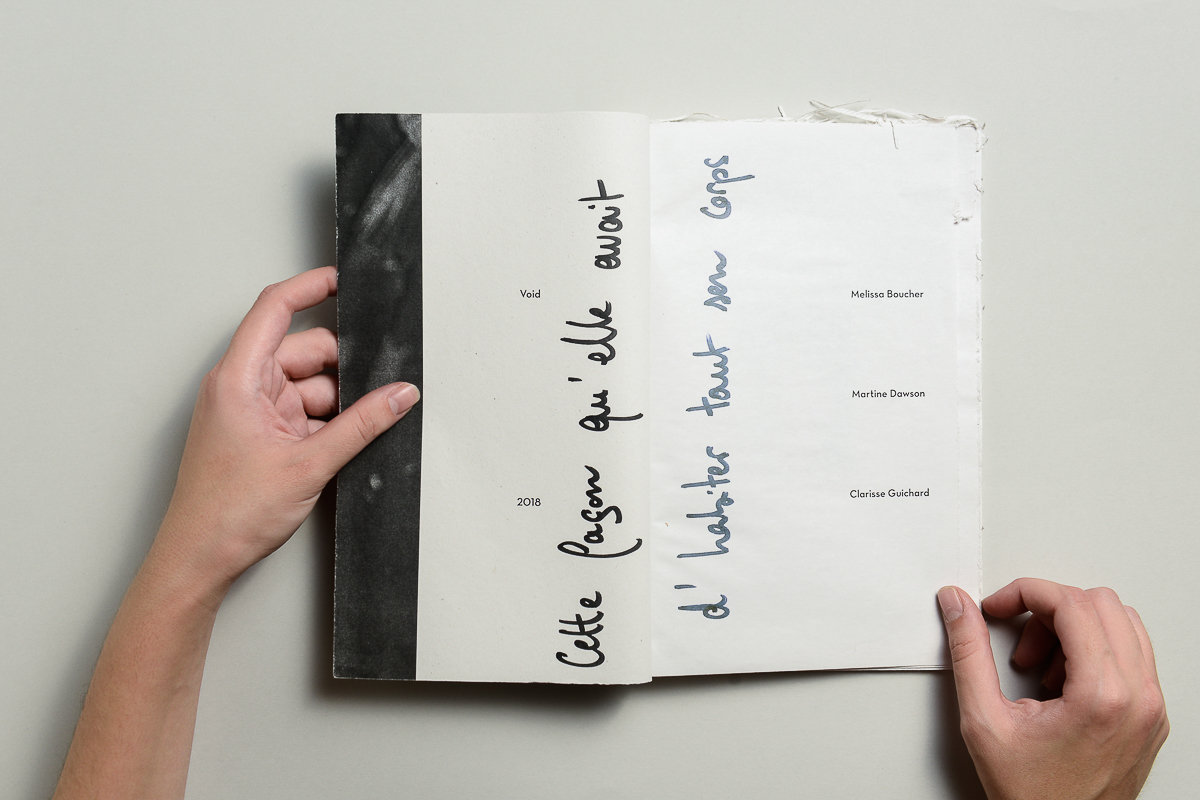 Void
2018
Cette façon qu'elle avait
d'habiter tout son corps
Melissa Boucher
Martine Dawson
Clarisse Guichard